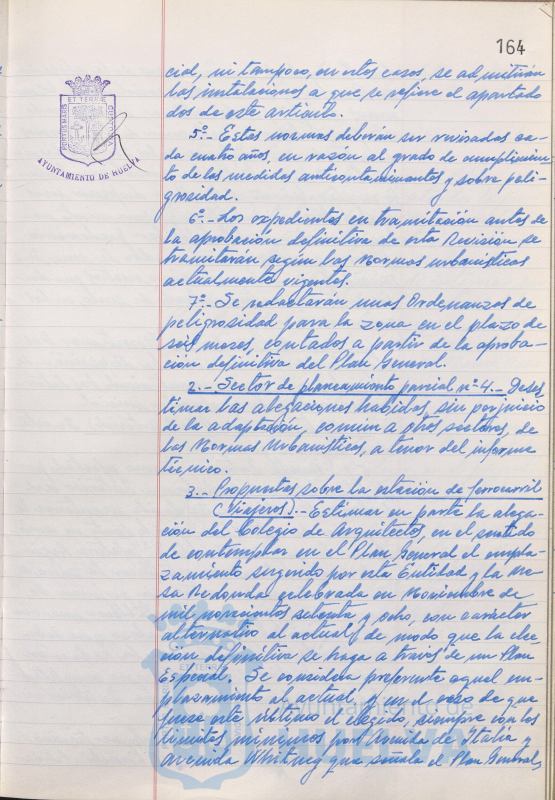 164
PORTUS MARIS ET TERRE CUSTODIA
AYUNTAMIENTO DE HUELVA
cial, ni tampoco, en estos casos, se admitirán
las instalaciones a que se refiere el apartado
dos de este artículo.
5º.- Estas normas deberán ser revisadas ca-
da cuatro años, en razón al grado de cumplimien-
to de las medidas anticontaminantes y sobre peli-
grosidad.
6º.- Los expedientes en tramitación antes de
la aprobación definitiva de esta Revisión se
tramitarán según las Normas urbanísticas
actualmente vigentes.
7º.- Se redactarán unas Ordenanzas de
peligrosidad para la zona en el plazo de
seis meses, contados a partir de la aproba-
ción definitiva del Plan General.
2.- Sector de planeamiento parcial nº 4.- Deses
timar las alegaciones habidas, sin perjuicio
de la adaptación, común a otros sectores, de
las Normas Urbanísticas, a tenor del informe
técnico.
3.- Propuestas sobre la estación de ferrocarril
(Viajeros).- Estimar en parte la alega-
ción del Colegio de Arquitectos, en el sentido
de contemplar en el Plan General el empla-
zamiento sugerido por esta Entidad y la Me-
sa Redonda celebrada en Noviembre de
mil novecientos setenta y ocho, con carácter
alternativo al actual, de modo que la elec-
ción definitiva se haga a través de un Plan
Especial. Se considera preferente aquel em-
plazamiento al actual, y en el caso de que
fuese este último el elegido, siempre con los
límites por Avenida de Italia y
Avenida que señala el Plan General,
Ayuntamiento de
HUELVA